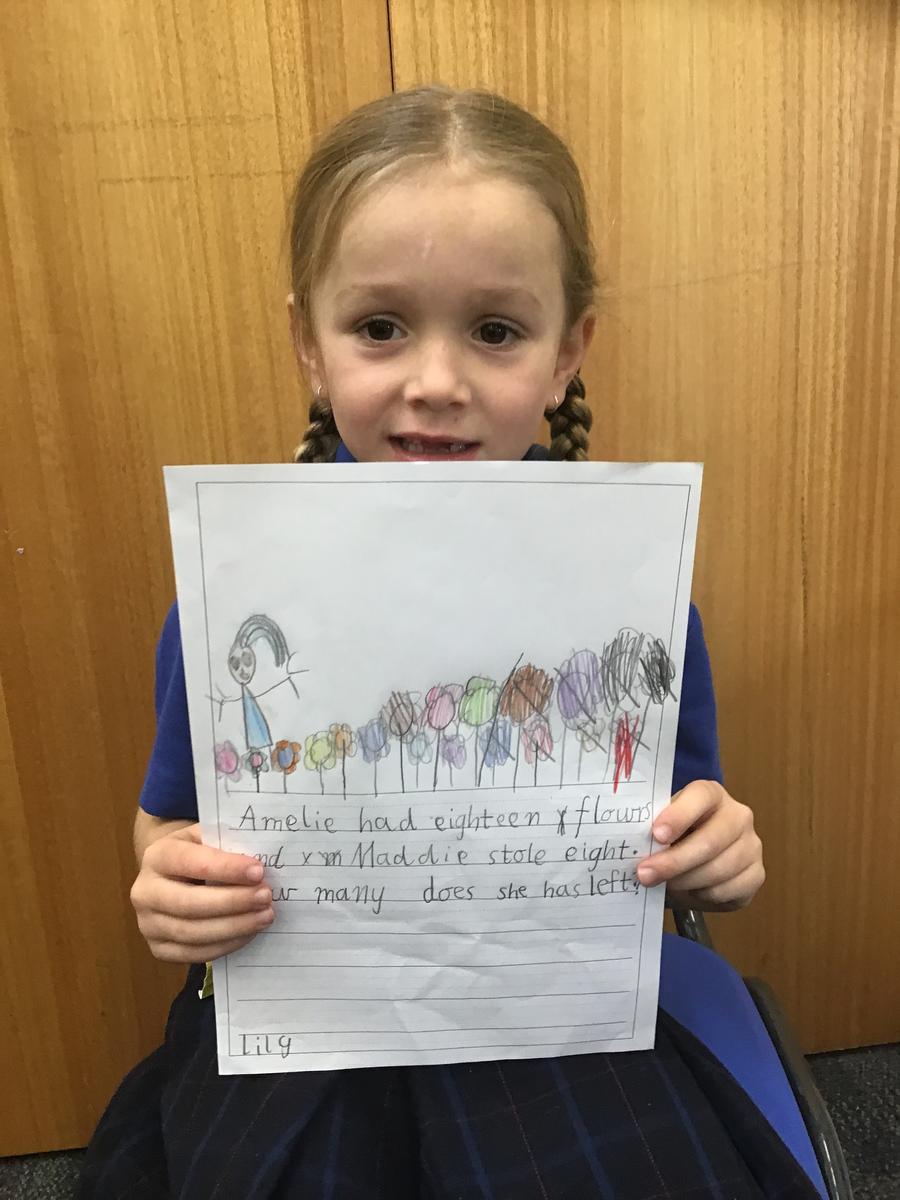 Amelie had eighteen x flowrs
nd x m Maddie stole eight.
w many does she has left?
lily